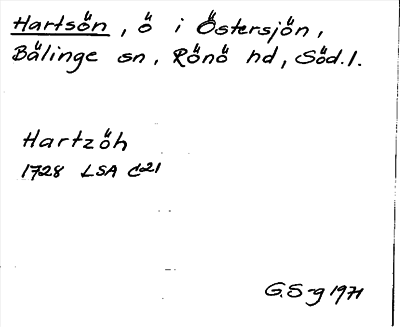 Hartsön, ö i Östersjön,
Bälinge sn, Rönö hd, Söd.l.
Hartzöh
1728 LSA C21
G.S-g 1971